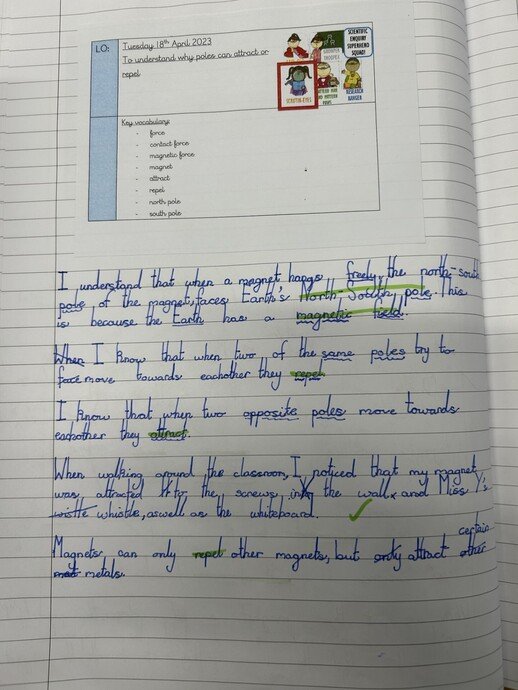 LO:
Tuesday 18th April 2023
To understand why poles can attract or
repel
SCIENTIFIC
ENQUIRY
SUPERHERO
SQUAD!
SCRUTIN-EYES
RESEARCH
RANGER
Key vocabulary:
- force
- contact force
- magnetic force
- magnet
- attract
- repel
- north pole
- south pole
I understand that when a magnet hangs freely, the north-south
pole of the magnet, faces Earth's North-South pole. This
is because the Earth has a magnetic field.
When I know that when two of the same poles try to
move towards eachother they repel
I know that when two opposite poles move towards
eachother they attract.
When walking around the classroom, I noticed that my magnet
was attracted to the screws, in the wall, and Miss Y's
whistle, aswell as the whiteboard.
certain
Magnets can only repel other magnets, but only attract other
metals.